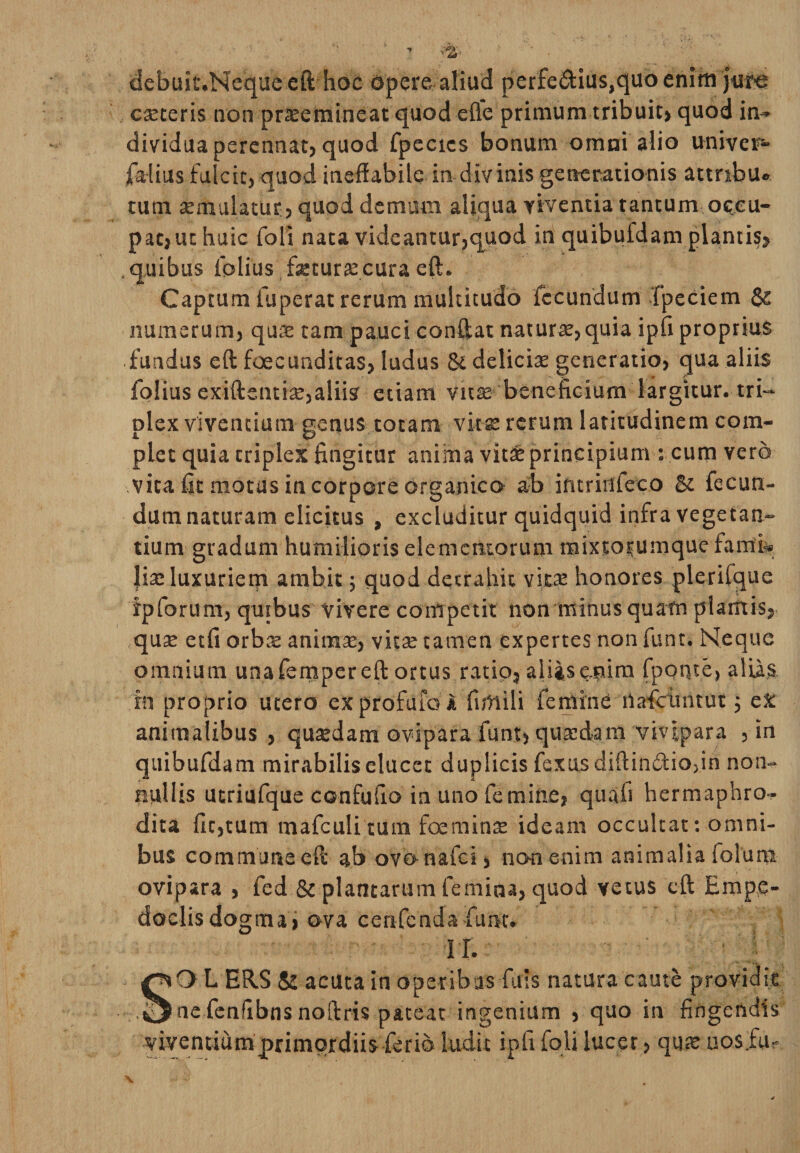 2
debuit.Neque eſt hoc opere aliud perfectius,quo enim jure
cæteris non præemineat quod eſſe primum tribuit, quod in-
dividua perennat, quod ſpecies bonum omni alio univer-
ſalius fulcit, quod ineffabile in divinis generationis attribu-
tum æmulatur, quod demum aliqua viventia tantum occu-
pat, ut huic ſoli nata videantur,quod in quibuſdam plantis,
quibus ſolius fæturæ cura eſt.
Captum ſuperat rerum multitudo ſecundum ſpeciem &
numerum, quæ tam pauci conſtat naturæ, quia ipſi proprius
fundus eſt fœcunditas, ludus & deliciæ generatio, qua aliis
ſolius exiſtentiæ,aliis etiam vitæ beneficium largitur. tri-
plex viventium genus totam vitæ rerum latitudinem com-
plet quia triplex fingitur anima vitæ principium : cum verò
vita ſit motus in corpore organico ab intrinſeco & ſecun-
dum naturam elicitus , excluditur quidquid infra vegetan-
tium gradum humilioris elementorum mixtorumque fami-
liæ luxuriem ambit ; quod detrahit vitæ honores pleriſque
ipſorum, quibus vivere competit non minus quam plantis,
quæ etſi orbæ animæ, vitæ tamen expertes non ſunt. Neque
omnium una ſemper eſt ortus ratio, aliàs enim ſponte, aliàs
in proprio utero ex profuſo à ſimili ſemine naſcuntut ; ex
animalibus , quædam ovipara ſunt, quædam vivipara , in
quibuſdam mirabilis elucet duplicis ſexus diſtinctio,in non-
nullis utriuſque confuſio in uno ſemine, quaſi hermaphro-
dita ſit,tum maſculi tum fœminæ ideam occultat: omni-
bus commune eſt ab ovo naſci, non enim animalia ſolum
ovipara , ſed & plantarum ſemina, quod vetus eſt Empe-
doclis dogma, ova cenſenda ſunt.
II.
SOLERS & acuta in operibus ſuis natura cautè providit
ne ſenſibns noſtris pateat ingenium , quo in fingendis
viventium primordiis ſeriò ludit ipſi ſoli lucet , quæ nos fu-